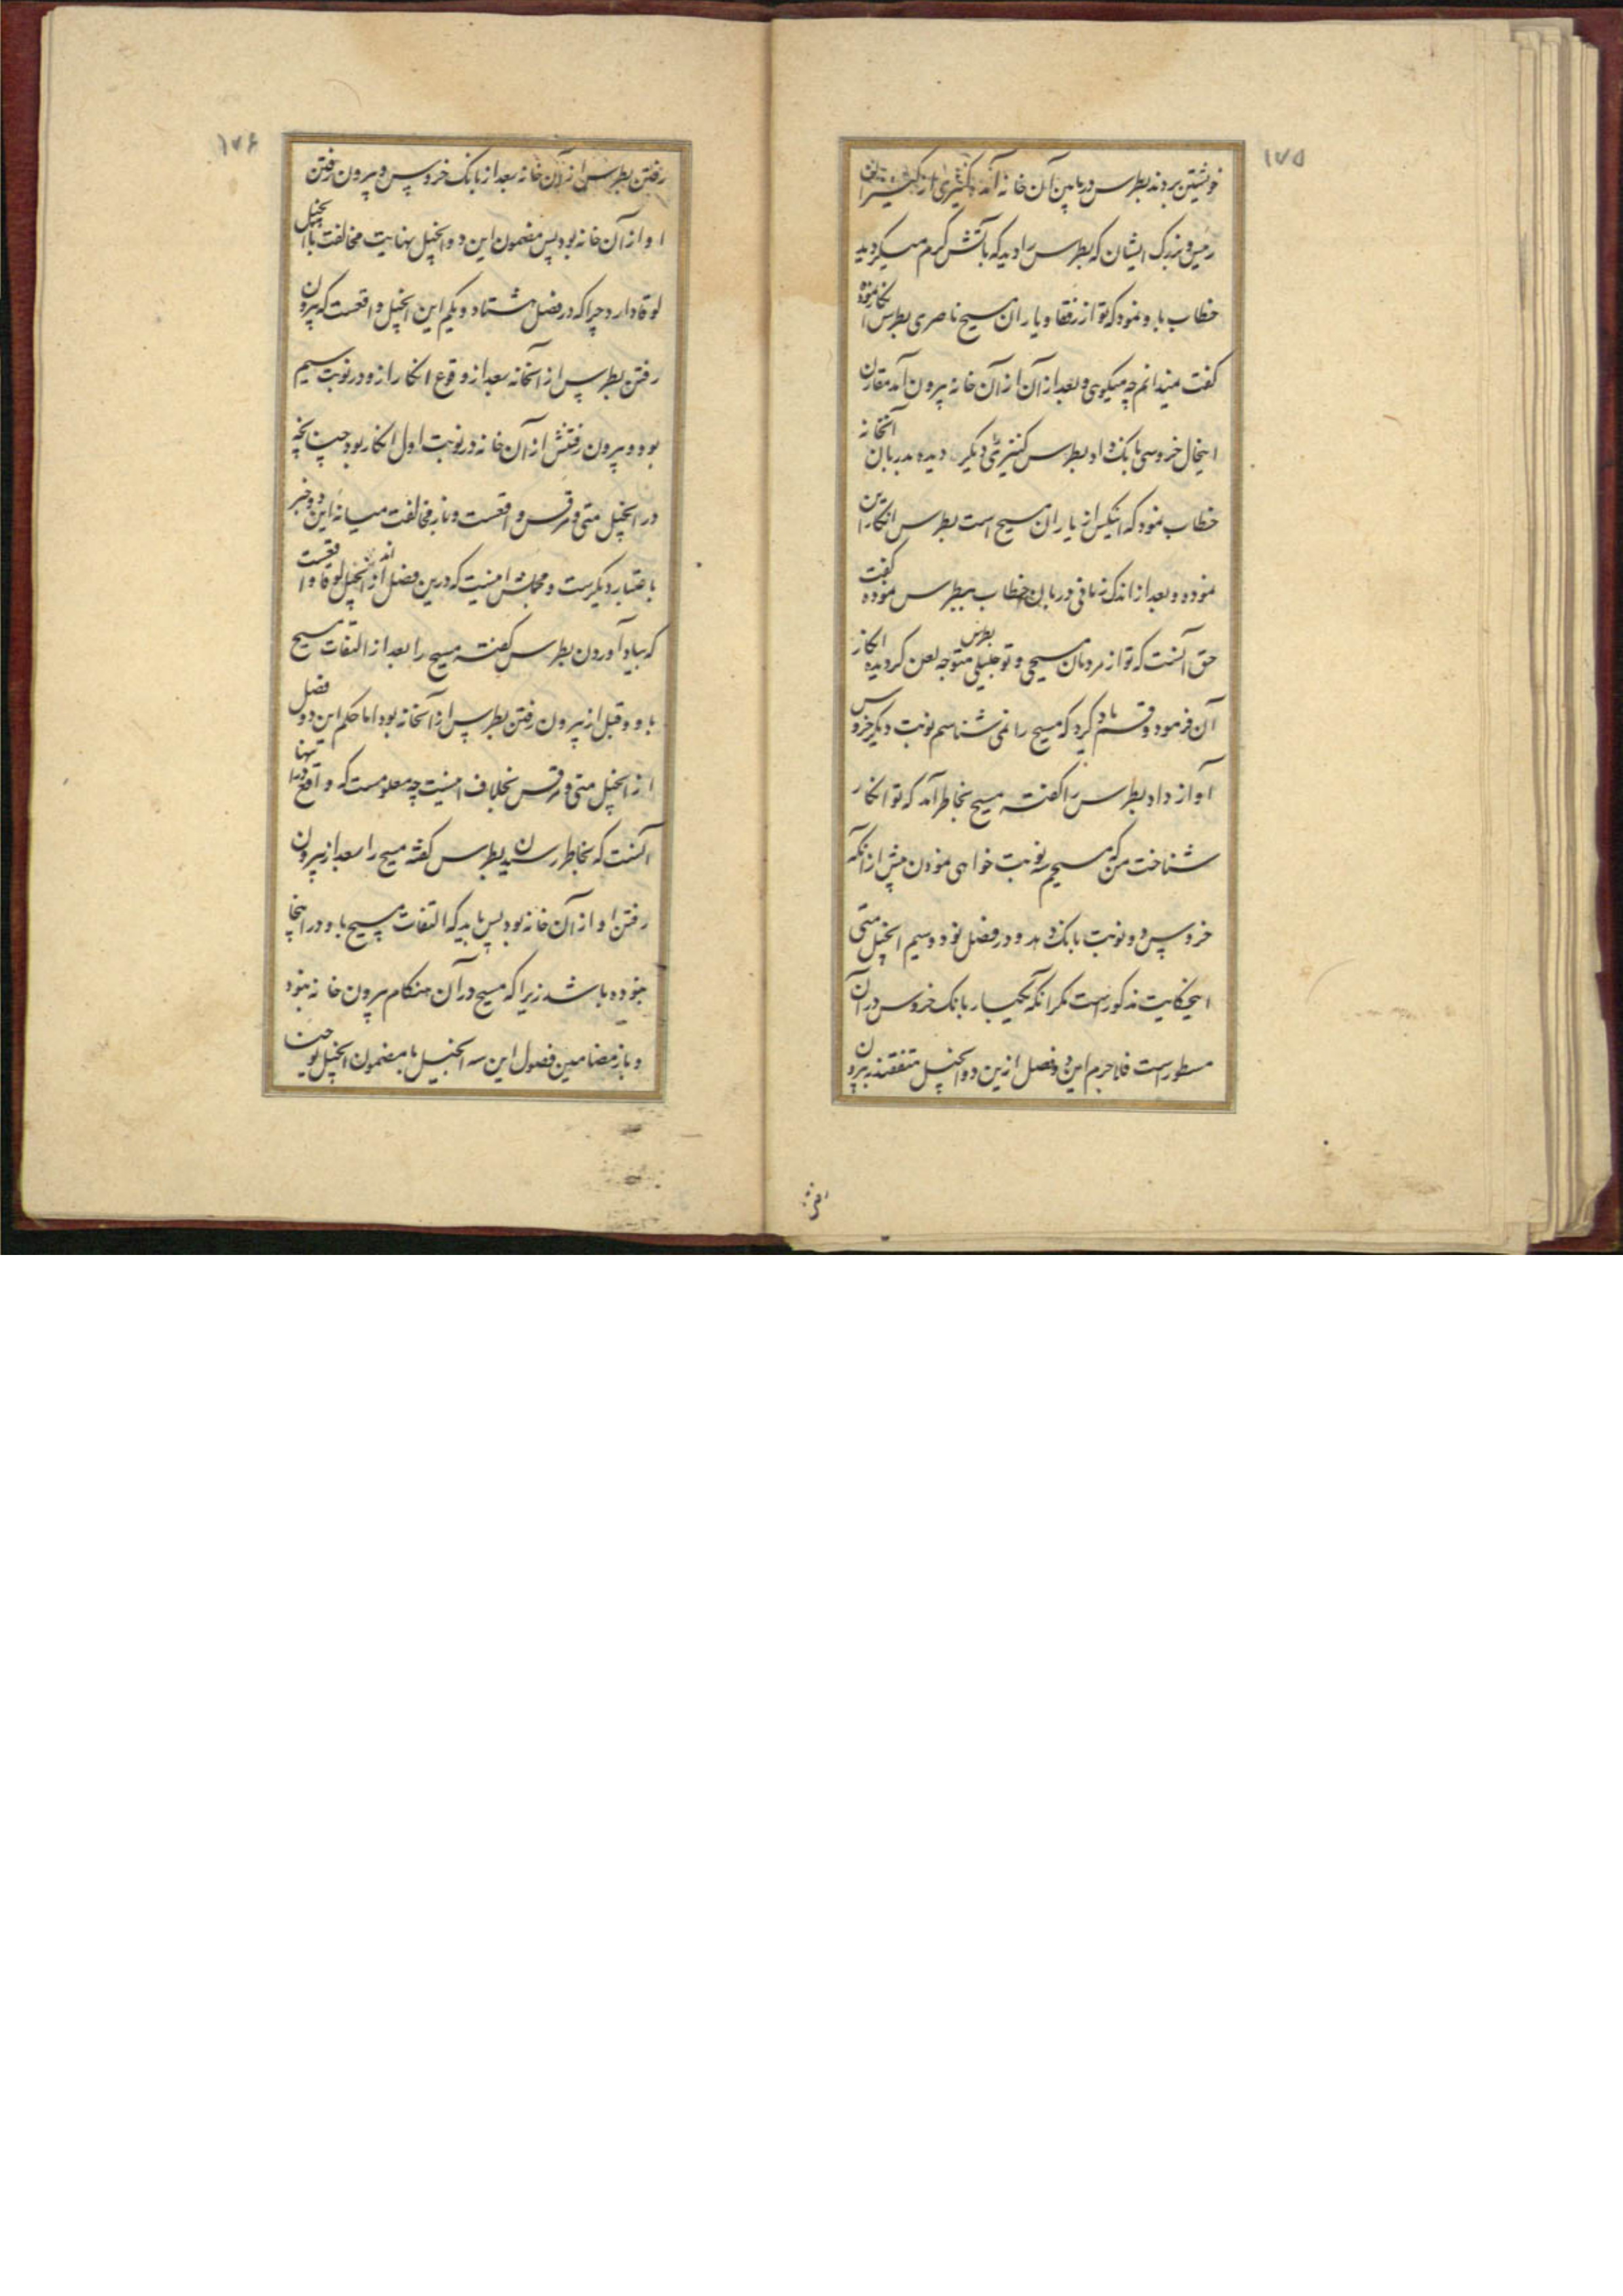 ۱۷۵
خویشتن بردند بطرس در پایین آن خانه آمد کنیزی از کنیزان
رییس و بزرک ایشان که بطرس را دید که باتش کرم میکردید
خطاب باو نمود که تو از رفقا و یاران مسیح ناصری بطرس انکار نموده
کفت نمیدانم چه میکویی و بعد از آن از آن خانه بیرون آمد مقارن
اینحال خروسی بانک داد بطرس کنیزی دیکر دیده بدربان آنخانه
خطاب نمود که اینکس از یاران مسیح است بطرس انکار این
نموده و بعد از اندک زمانی دربان خطاب ببطرس نموده کفت
حق آنست که تو از مردمان مسیحی و تو جلیلی بطرس متوجه لعن کردیده انکار
آن فرمود و قسم یاد کرد که مسیح را نمی شناسم نوبت دیکر خروس
آواز داد بطرس را کفته مسیح بخاطر آمد که تو انکار
شناخت من که مسیحم سه نوبت خواهی نمودن پیش از آنکه
خروس دو نوبت بانک دهد و در فصل نود و سیم انجیل متی
اینحکایت مذکور است مکر آنکه یکبار بانک خروس در آن
مسطور است فلاجرم این دو فصل ازین دو انجیل متفقند بر بیرون
رفتن
۱۷۶
رفتن بطرس از آن خانه بعد از بانک خروس و بیرون رفتن
او از آن خانه بود پس مضمون این دو انجیل نهایت مخالفت با انجیل
لوقا دارد چرا که در فصل هشتاد و یکم این انجیل واقعست که بیرون
رفتن بطرس از آنخانه بعد از وقوع انکار ازو در نوبت سیم
بود و بیرون رفتنش از آن خانه در نوبت اول انکار بود چنانچه
در انجیل متی و مرقس واقعست و باز مخالفت میانه این دو خبر
باعتبار دیکرست و مجملش اینست که درین فصل از انجیل لوقا واقعست
که بیاد آوردن بطرس کفته مسیح را بعد از التفات مسیح
باو و قبل از بیرون رفتن بطرس از آنخانه بود اما حکم این دو فصل
از انجیل متی و مرقس بخلاف اینست چه معلومست که واقع در اینها
آنست که بخاطر رسیدن بطرس کفته مسیح را بعد از بیرون
رفتن او از آن خانه بود پس باید که التفات مسیح باو در اینجا
نبوده باشد زیرا که مسیح در آن هنکام بیرون خانه نبود
و باز مضامین فصول این سه انجیل با مضمون انجیل یوحنا